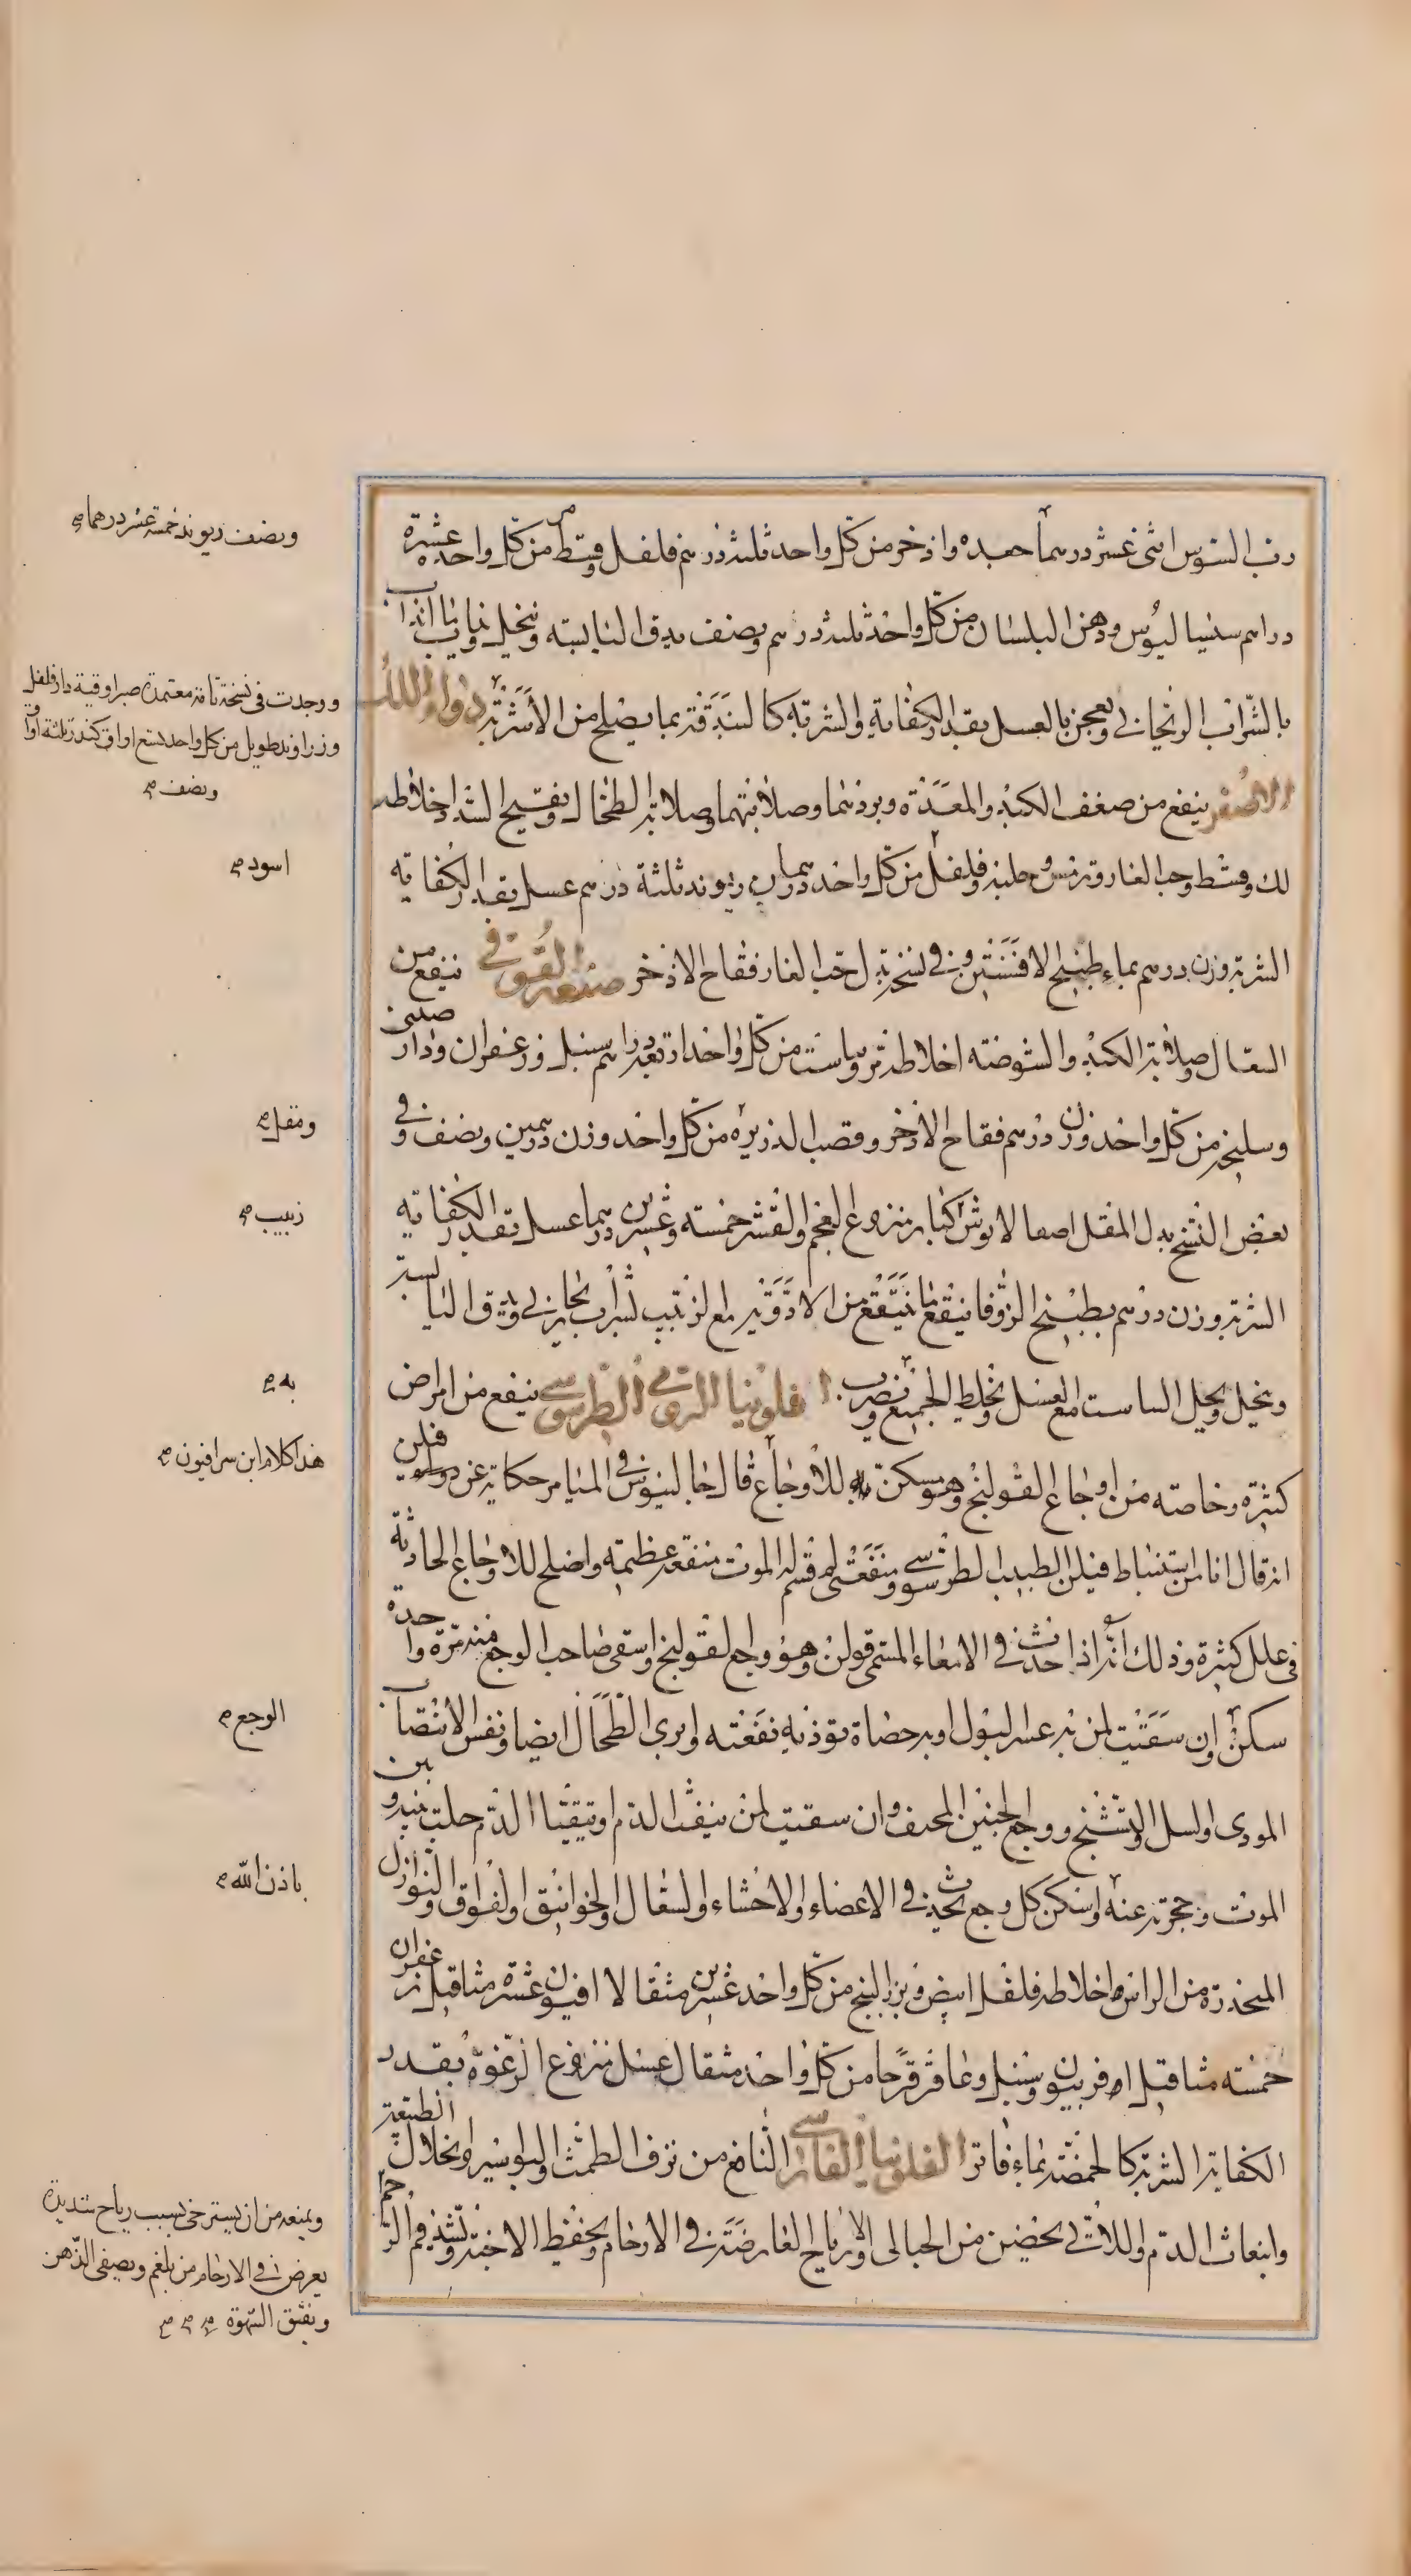 رب السوس اثنى عشر درهما جعده واذخر من كل واحد ثلثة درهم فلفل وقسط من كل واحد عشرة
دراهم سيساليوس ودهن البلسان من كل واحد ثلثة درهم ونصف يدق اليابسة وينخل ويذاب ما انذاب
بالشراب الريحاني ويعجن بالعسل بقدر الكفاية والشربة كالبندقة بما يصلح من الاشربة دواء اللك
الاصفر ينفع من ضعف الكبد والمعدة وبردهما وصلابتهما وصلابة الطحال وتفتيح السدد اخلاطه
لك وقسط وحب الغار وترمس وحلبة وفلفل من كل واحد درهمان ريوند ثلثة درهم عسل بقدر الكفاية
الشربة وزن درهم بماء طبيخ الافسنتين وفي نسخة بدل حب الغار فقاح الاذخر صنعة القوفي ينفع من
السعال وصلابة الكبد والشوصة اخلاطه من كل واحد اربعة دراهم سنبل وزعفران ودار صيني
وسليخة من كل واحد وزن درهم فقاح الاذخر وقصب الذريرة من كل واحد وزن درهمين ونصف وفي
بعض النسخ بدل المقل كبار منزوع العجم والقشر خمسة وعشرين درهما عسل بقدر الكفاية
الشربة وزن درهم بطبيخ الزوفا ينقع ما ينتقع من الادوية مع الزبيب بشراب ريحاني ويدق اليابسة
وينخل ويحل مع العسل ويخلط الجميع ويضرب فلونيا الرومي الطرسوسي ينفع من امراض
كثيرة وخاصة من اوجاع القولنج وهو مسكن للاوجاع قال جالينوس في الميامر حكاية عن فيلن
انه قال انا من استنباط فيلن الطبيب الطرسوسي ومنفعتي لمن قسم له الموت منفعة عظيمة واصلح للاوجاع الحادثة
في علل كثيرة وذلك انه اذا حدث في الامعاء المسمى قولن وهو وجع القولنج واسقى صاحب الوجع منه مرة واحدة
سكن وان سقيت لمن به عسر البول او به حصاة توذيه نفعته وابري الطحال ايضا ونفس الانتصاب
الموذي والسل والتشنج ووجع الجنبين المخيف وان سقيت لمن ينفث الدم او يتقيا الدم حلت بينه وبين
الموت وحجزته عنه واسكن كل وجع يحدث في الاعضاء والاحشاء والسعال والخوانيق والفواق والنوازل
المنحدرة من الراس اخلاطه فلفل ابيض وبزر البنج من كل واحد عشرين مثقالا افيون عشرة مثاقيل زعفران
خمسة مثاقيل افربيون وسنبل وعاقرقرحا من كل واحد مثقال عسل منزوع الرغوة بقدر
الكفاية الشربة كالحمصة بماء فاتر الفلونيا الفارسي النافع من نزف الطمث والبواسير وانحلال الطبيعة
وانبعاث الدم واللاتي يحضن من الحبالى والارياح العارضة في الارحام ويحفظ الاجنة ويشد فم الرحم
ونصف ريوند خمسة عشر درهما صح
ووجدت في نسخة تامة معتمدة صبر اوقية دارفلفل
وزراوند طويل من كل واحد تسع اواق كندر ثلثة اواق
ونصف صح
اسود صح
ومقل صح
زبيب صح
به صح
هذا كلام ابن سرافيون صح
الوجع صح
باذن الله صح
ويمنعه من ان يسترخي بسبب رياح شديدة
يعرض في الارحام من بلغم ويصفى الذهن
ويفتق الشهوة صح صح صح